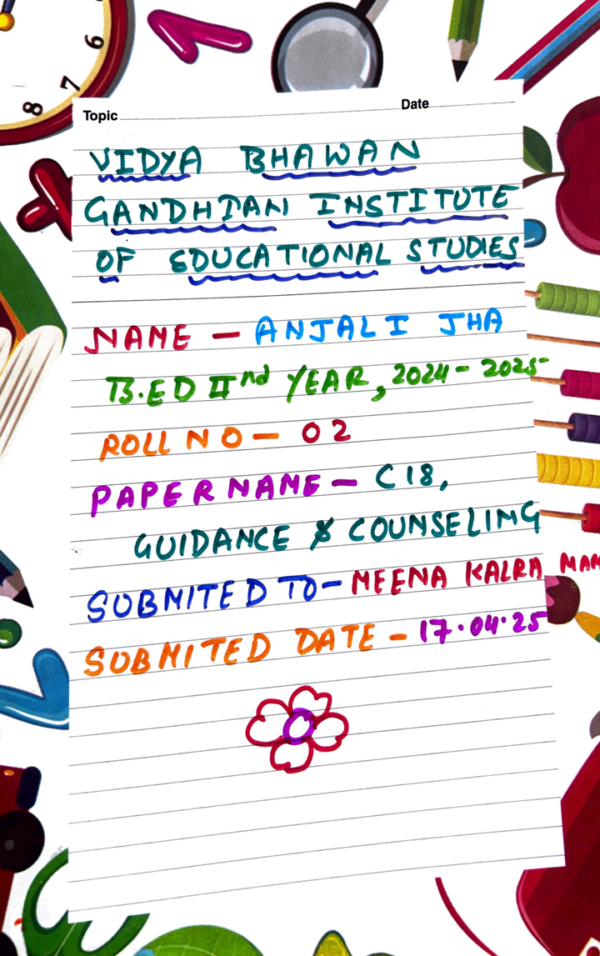 8 7 6
Topic Date
VIDYA BHAWAN
GANDHIAN INSTITUTE
OF EDUCATIONAL STUDIES
NAME - ANJALI JHA
B.ED IInd YEAR, 2024-2025-
ROLL NO - 02
PAPER NAME - C18,
GUIDANCE & COUNSELING
SUBMITED TO - MEENA KALRA MAM
SUBMITED DATE - 17.04.25